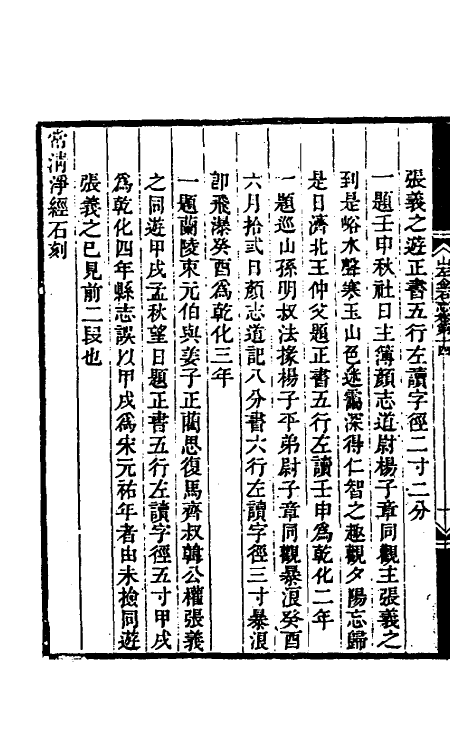 張義之遊正書五行左讀字徑二寸二分
一題壬申秋社日主簿顏志道尉楊子章同觀主張義之
到是峪水聲寒玉山色迷靄深得仁智之趣觀夕陽忘歸
是日濟北王仲父題正書五行左讀壬申為乾化二年
一題巡山孫明叔法掾楊子平弟尉子章同觀暴浪癸酉
六月拾弍日顏志道記八分書六行左讀字徑三寸暴浪
卽飛瀑癸酉為乾化三年
一題蘭陵束元伯與姜子正藺思復馬齊叔韓公權張義
之同遊甲戌孟秋望日題正書五行左讀字徑五寸甲戌
為乾化四年縣志誤以甲戌為宋元祐年者由未檢同遊
張義之已見前二段也
常淸淨經石刻